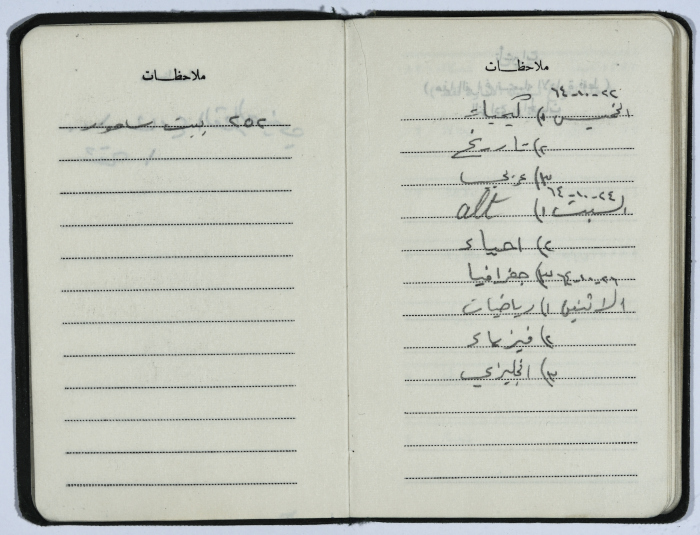 ملاحظات
٦٤-١٠-٢٢
الخميس ١) كيمياء
٢) تاريخ
٣) عربي
٦٤-١٠-٢٤
السبت ١) alt
٢) احياء
٣) جغرافيا
٦٤-١٠-٢٦
الاثنين ١) رياضيات
٢) فيزياء
٣) انجليزي
ملاحظات
٢٥٢ بيت ساحور